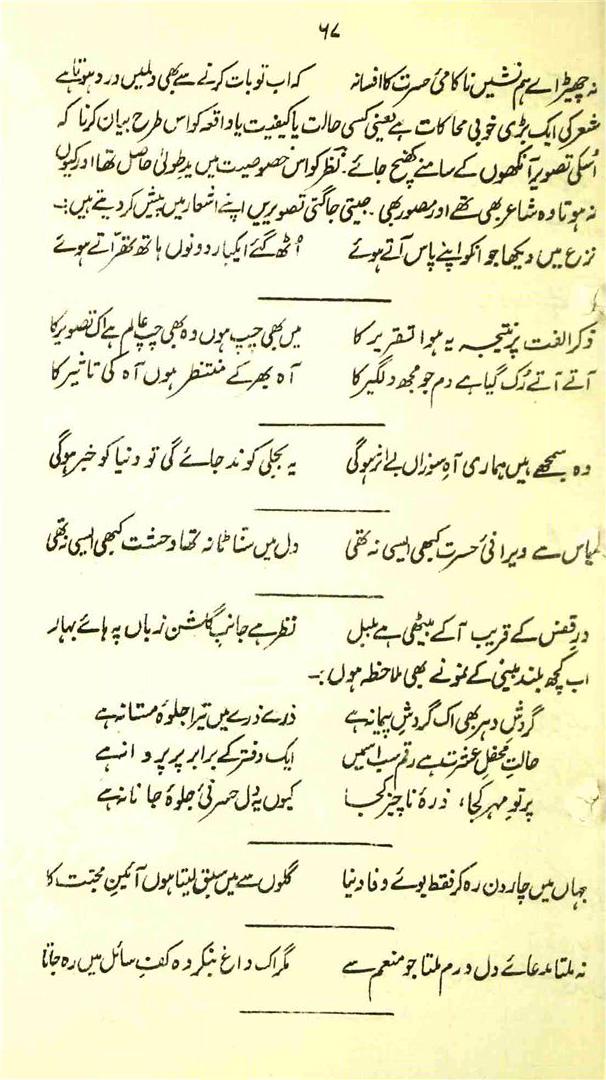 ۶۷
نہ چھیڑ اے ہم نشیں ناکامئ حسرت کا افسانہ کہ اب تو بات کرنے سے بھی دلمیں درد ہوتا ہے
شعر کی ایک بڑی خوبی محاکات ہے یعنی کسی حالت یا کیفیت یا واقعہ کو اس طرح بیان کرنا کہ
اُسکی تصویر آنکھوں کے سامنے کھنچ جائے۔ نظر کو اس خصوصیت میں ید طولیٰ حاصل تھا اور کیوں
نہ ہوتا وہ شاعر بھی تھے اور مصور بھی۔ جیتی جاگتی تصویریں اپنے اشعار میں پیش کر دیتے ہیں:۔
نزع میں دیکھا جو انکو اپنے پاس آتے ہوئے اُٹھ گئے ایکبار دونوں ہاتھ تھرّاتے ہوئے
ذکر الفت پر نتیجہ یہ ہوا تقریر کا میں بھی چپ ہوں وہ بھی چپ عالم ہے اک تصویر کا
آتے آتے رُک گیا ہے دم جو مجھ دلگیر کا آہ بھر کے منتظر ہوں آہ کی تاثیر کا
وہ سمجھے ہیں ہماری آہِ سوزاں بے اثر ہوگی یہ بجلی کوند جائے گی تو دنیا کو خبر ہوگی
یاس سے ویرانئ حسرت کبھی ایسی نہ تھی دل میں سناٹا نہ تھا وحشت کبھی ایسی نہ تھی
درِ قفس کے قریب آکے بیٹھی ہے بلبل نظر ہے جانبِ گلشن زباں پہ ہائے بہار
اب کچھ بلند بینی کے نمونے بھی ملاحظہ ہوں:۔
گردشِ دہر بھی اک گردشِ پیمانہ ہے ذرے ذرے میں ترا جلوۂ مستانہ ہے
حالتِ محفلِ عشرت ہے رقم سب اسمیں ایک دفتر کے برابر پرِ پروانہ ہے
پرتوِ مہر کجا، ذرۂ ناچیز کجا کیوں یہ دل حسرتئ جلوۂ جانانہ ہے
جہاں میں چار دن رہ کر فقط بوئے وفا دینا گلوں سے میں سبق لیتا ہوں آئینِ محبت کا
نہ ملتا مدعائے دل درم ملتا جو منعم سے مگر اک داغ بنکر وہ کفِ سائل میں رہ جاتا